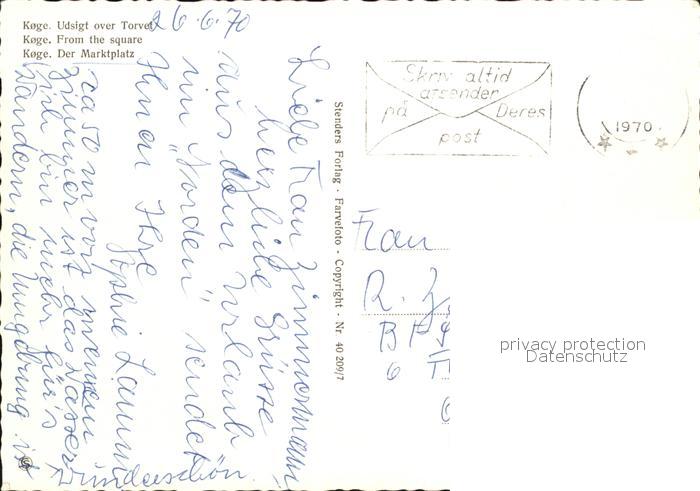 Køge. Udsigt over Torvet
Køge. From the square
Køge. Der Marktplatz
26.6.70
Liebe Frau Zimmermann
herzliche Grüsse
aus dem Urlaub
im "Norden" sendet
Ihnen Ihre
Sophie
ca 50 m von meinem
Zimmer ist das Wasser
Ich bin mehr für's
Wandern, die Umgebung ist
wunderschön.
Stenders Forlag · Farvefoto · Copyright · Nr. 40 209/7
Skriv altid
afsender
på Deres
post
1970
Frau
R. Z
B
6
privacy protection
Datenschutz